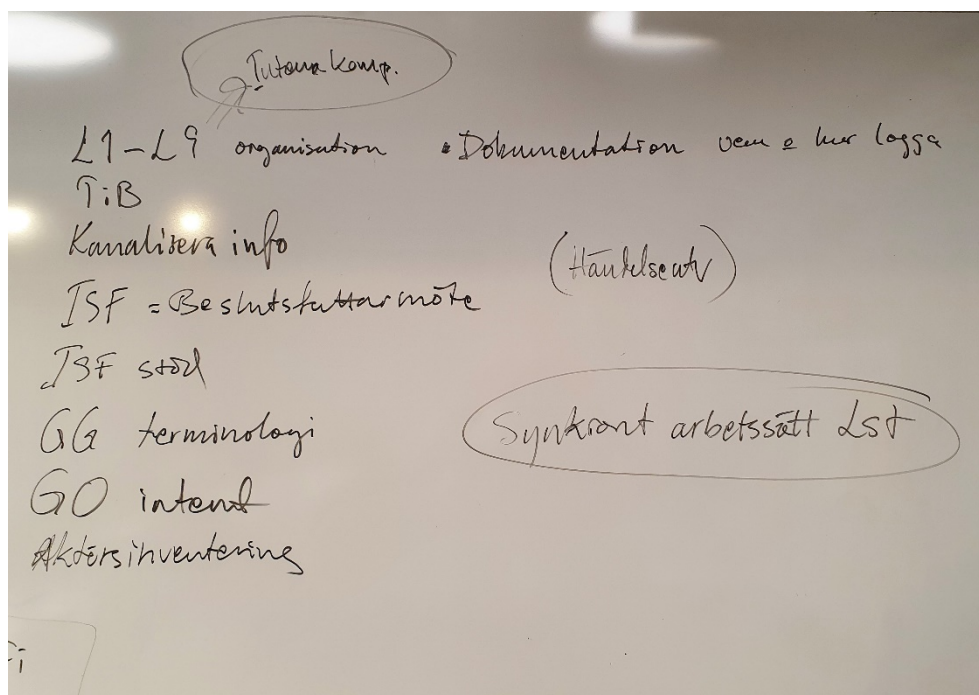 komp.
L1-L9 organisation
• Dokumentation vem o hur logga
TiB
Kanalisera info
(Händelseutv)
ISF = Beslutsfattarmöte
ISF stöd
GG terminologi
Synkront arbetssätt Lst
GO internt
Aktörsinventering